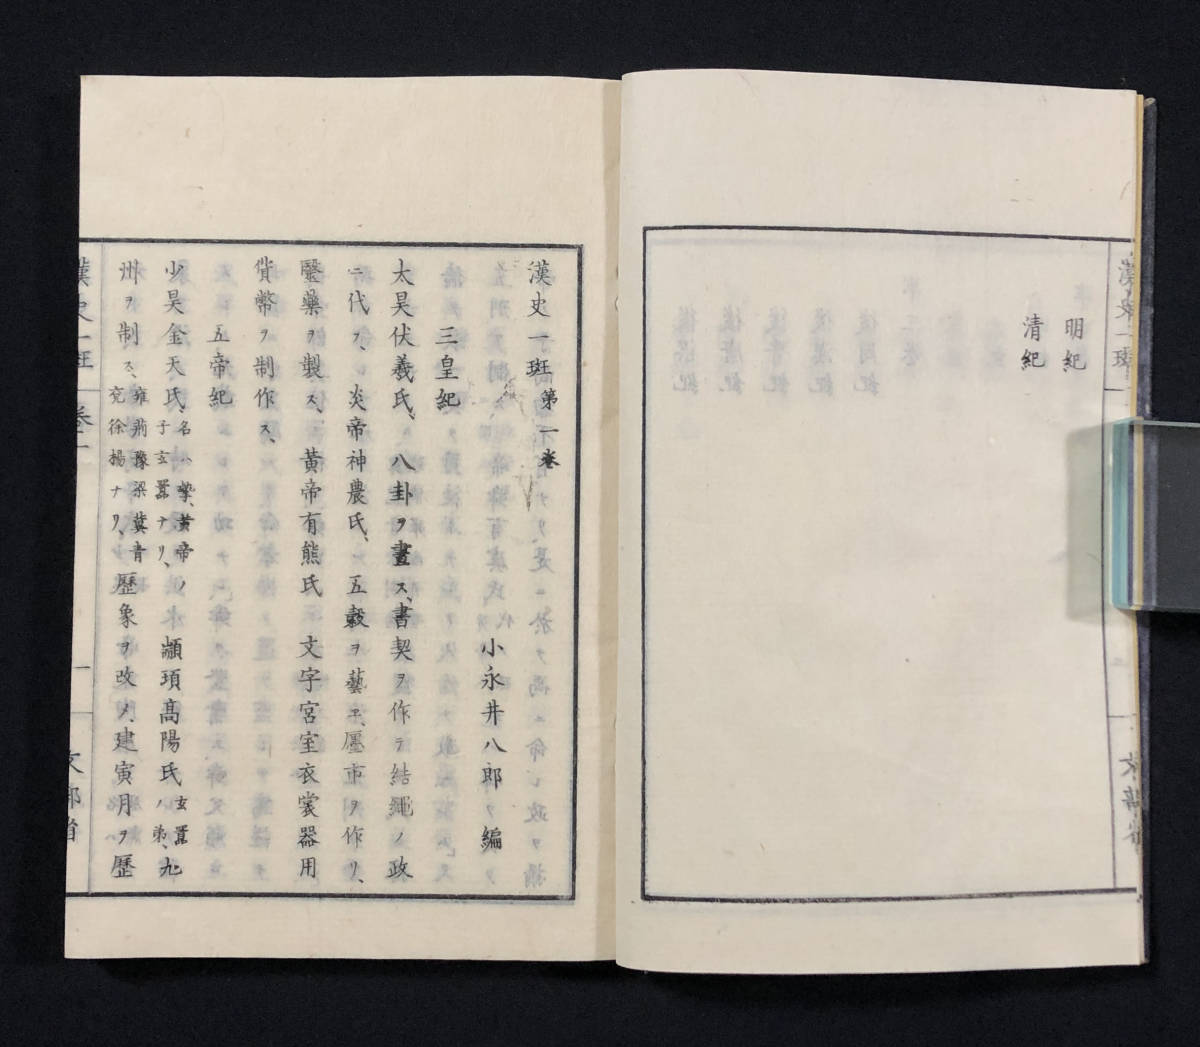 明紀
清紀
漢史一班 第一卷
小永井八郎 編
三皇紀
太昊伏羲氏、八卦ヲ畫ス、書契ヲ作テ結繩ノ政
ニ代フ、炎帝神農氏、五穀ヲ藝エ、廛市ヲ作リ、
醫藥ヲ製ス、黃帝有熊氏 文字宮室衣裳器用
貨幣ヲ制作ス、
五帝紀
少昊金天氏、名ハ摯、黃帝ノ子玄囂ナリ、顓頊高陽氏 玄囂ノ弟、九
州ヲ制ス、雍荊豫梁冀青兗徐揚ナリ、歷象ヲ改メ、建寅月ヲ歷
漢史一班 卷一 一 文部省